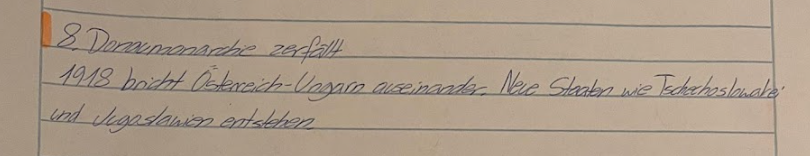 8. Donaumonarchie zerfällt
1918 bricht Österreich-Ungarn auseinander. Neue Staaten wie Tschechoslowakei
und Jugoslawien entstehen.